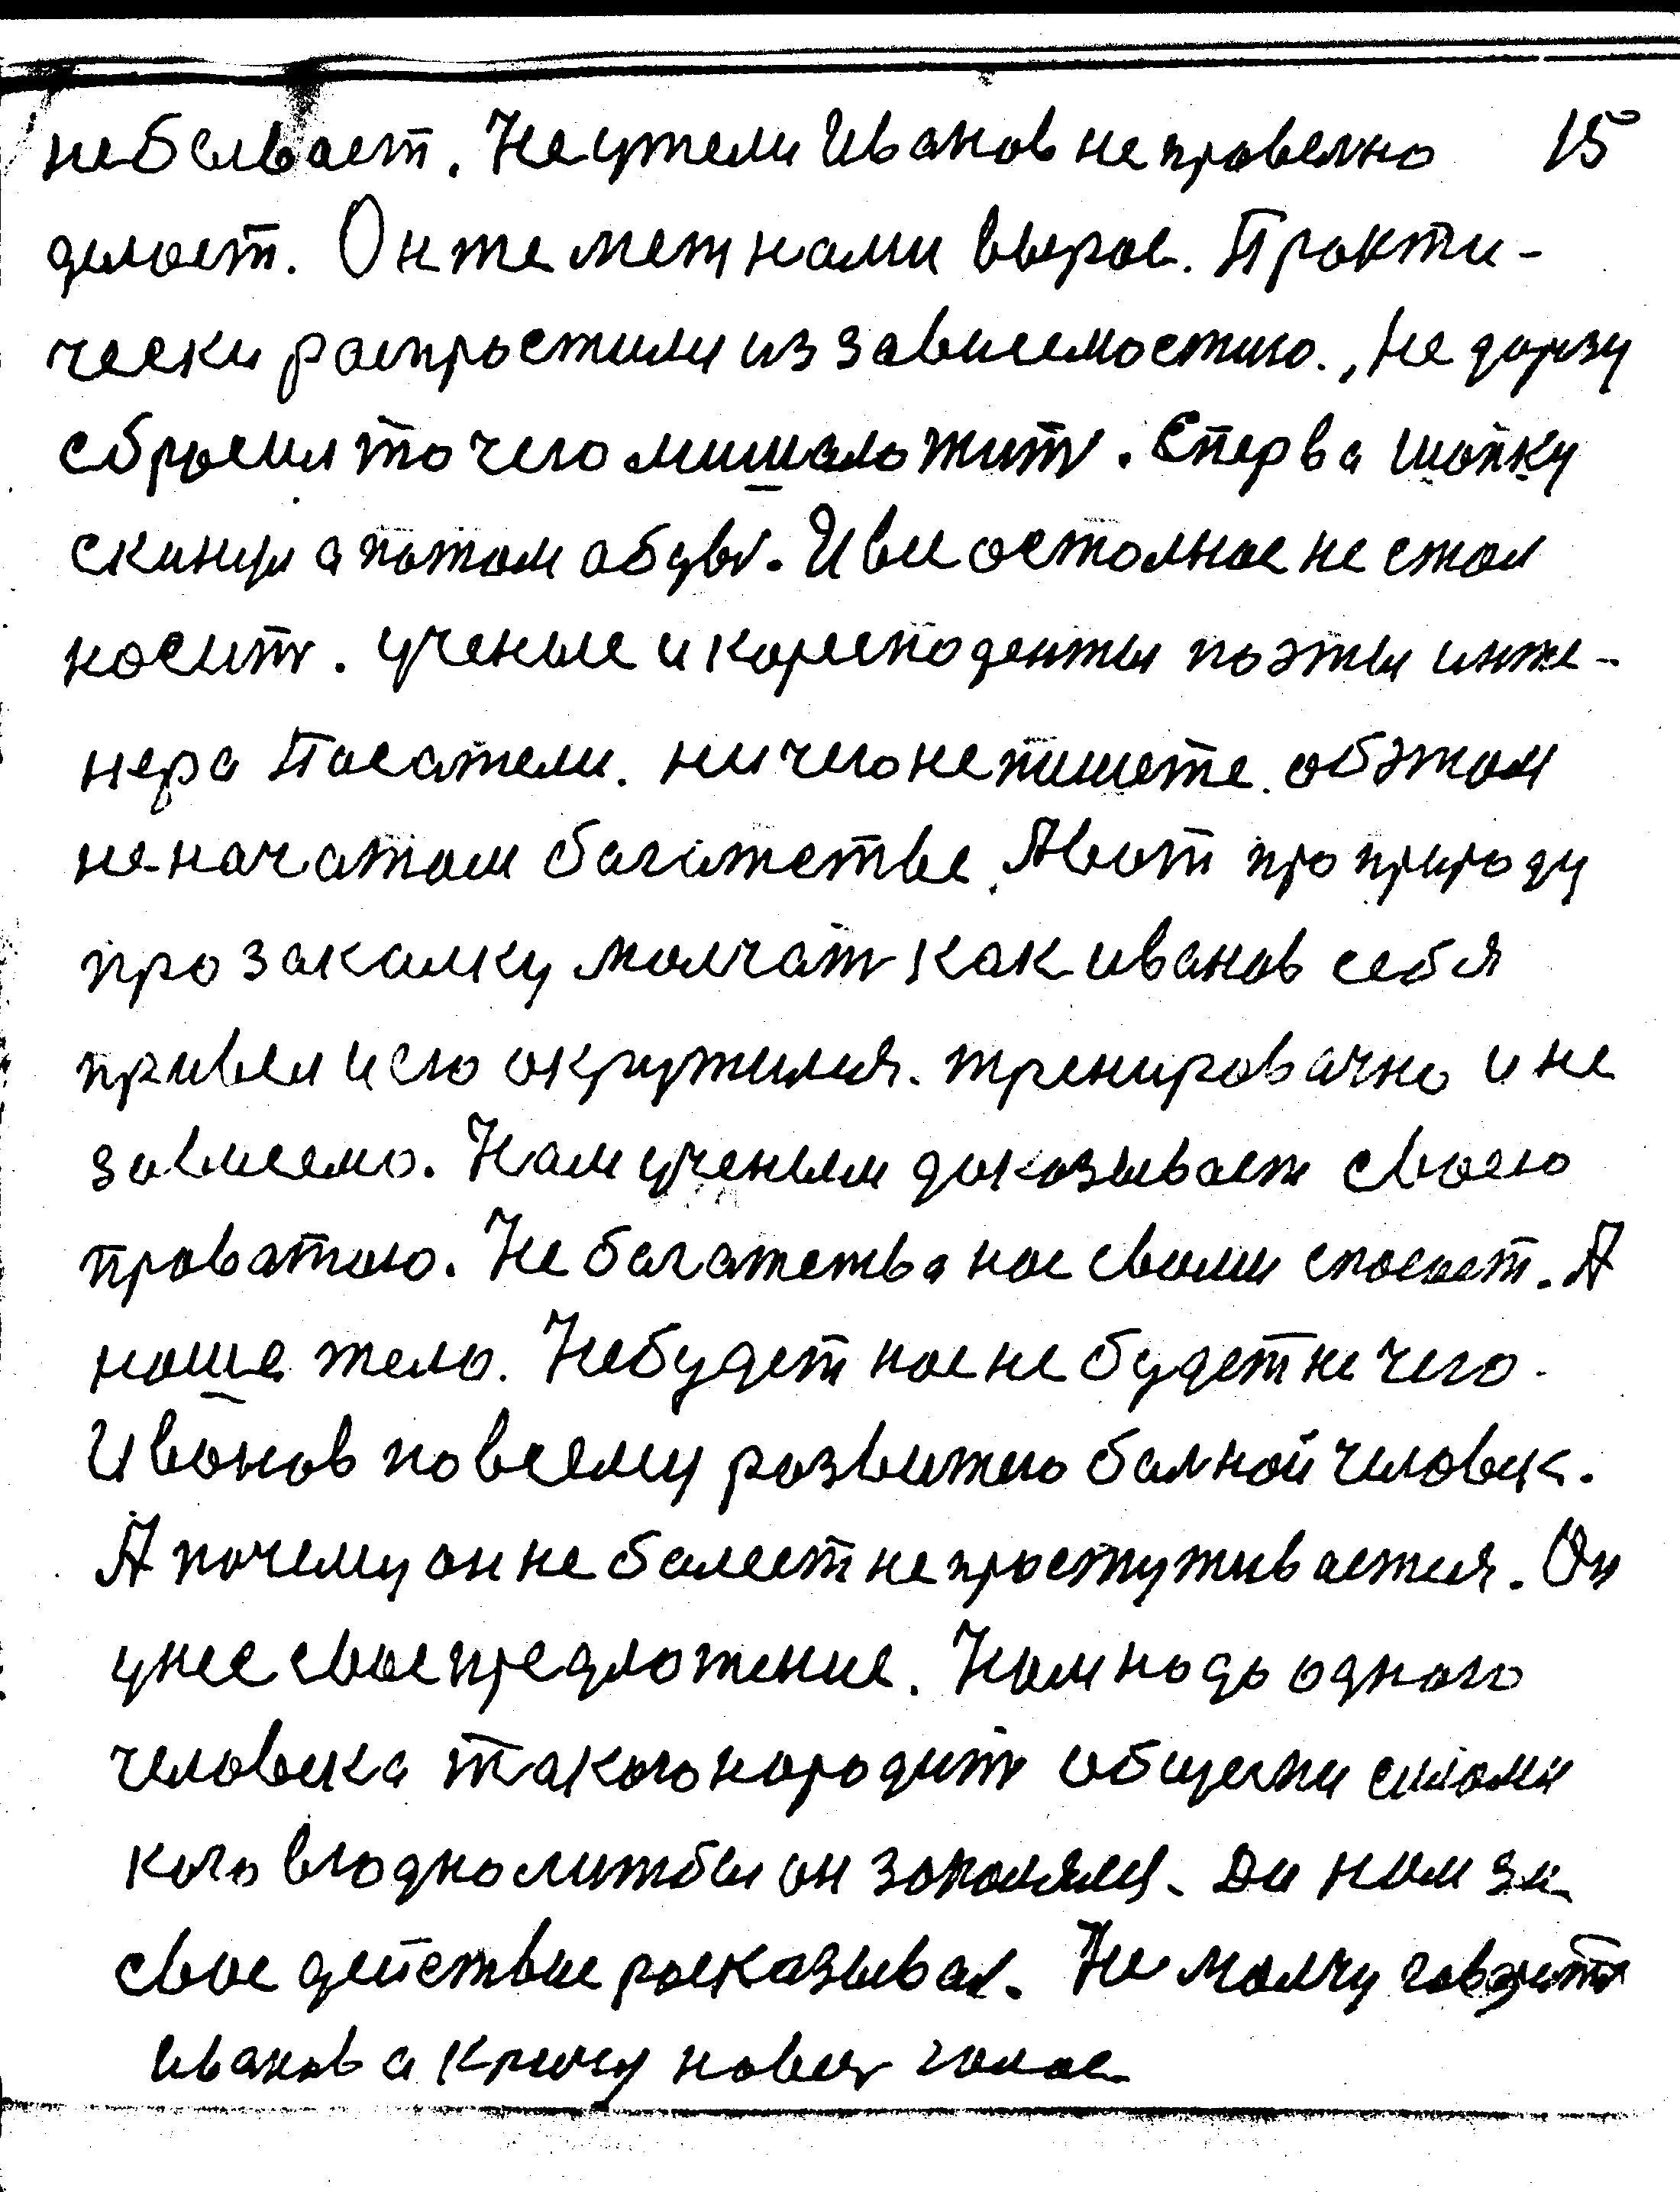 небывает. Неужели Иванов не правелно 15
делает. Он же меж нами вырос. Практи-
чески распростили из зависимостию., Не дорзу
сбросил то чего мишало жить. Сперва шапку
скинул а потом обувь. И все осталное не стал
носить. ученые и коресподенты поэты инже-
нера Писатели. ни чего не пишете. об этом
не початом багатстве. А вот про природу
про закалку молчать как иванов себя
привел и его окружился. тренировачно и не
зависемо. Нам ученым доказывает своею
праватою. Не багатства нас своим спосает. А
наше тело. Не будет нас не будет не чего.
Иванов по всяму развитию балной человек.
А почему он не балеет не простуживается. Он
унее свое предложение. Нам надо одного
человека такого народить общеми силами
кого в го дно литбы он заполялу. Да нам за
свое действие расказывал. Не молчу говорить
иванов а кричу на весь голос